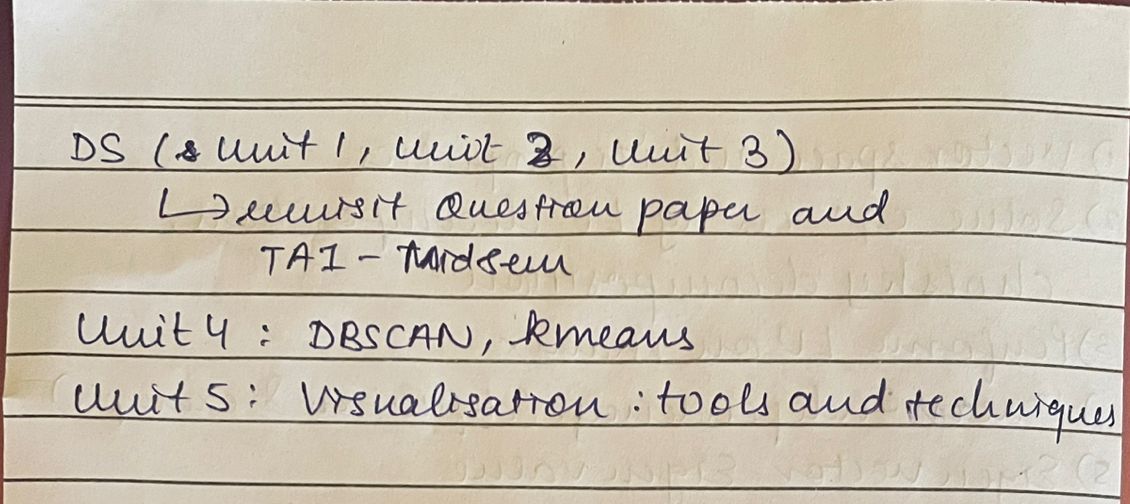 DS (Unit 1, Unit 2, Unit 3)
↳ revisit Question paper and
TA1 - Midsem
Unit 4 : DBSCAN, kmeans
Unit 5 : Visualisation : tools and techniques